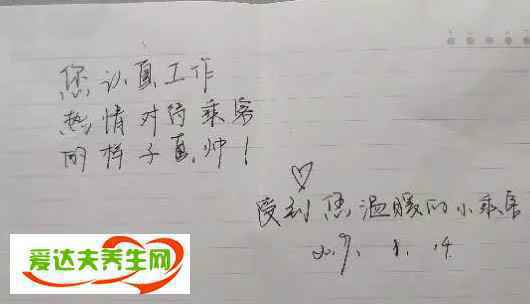 您认真工作
热情对待乘客
的样子真帅!
受到您温暖的小乘客
爱达夫养生网